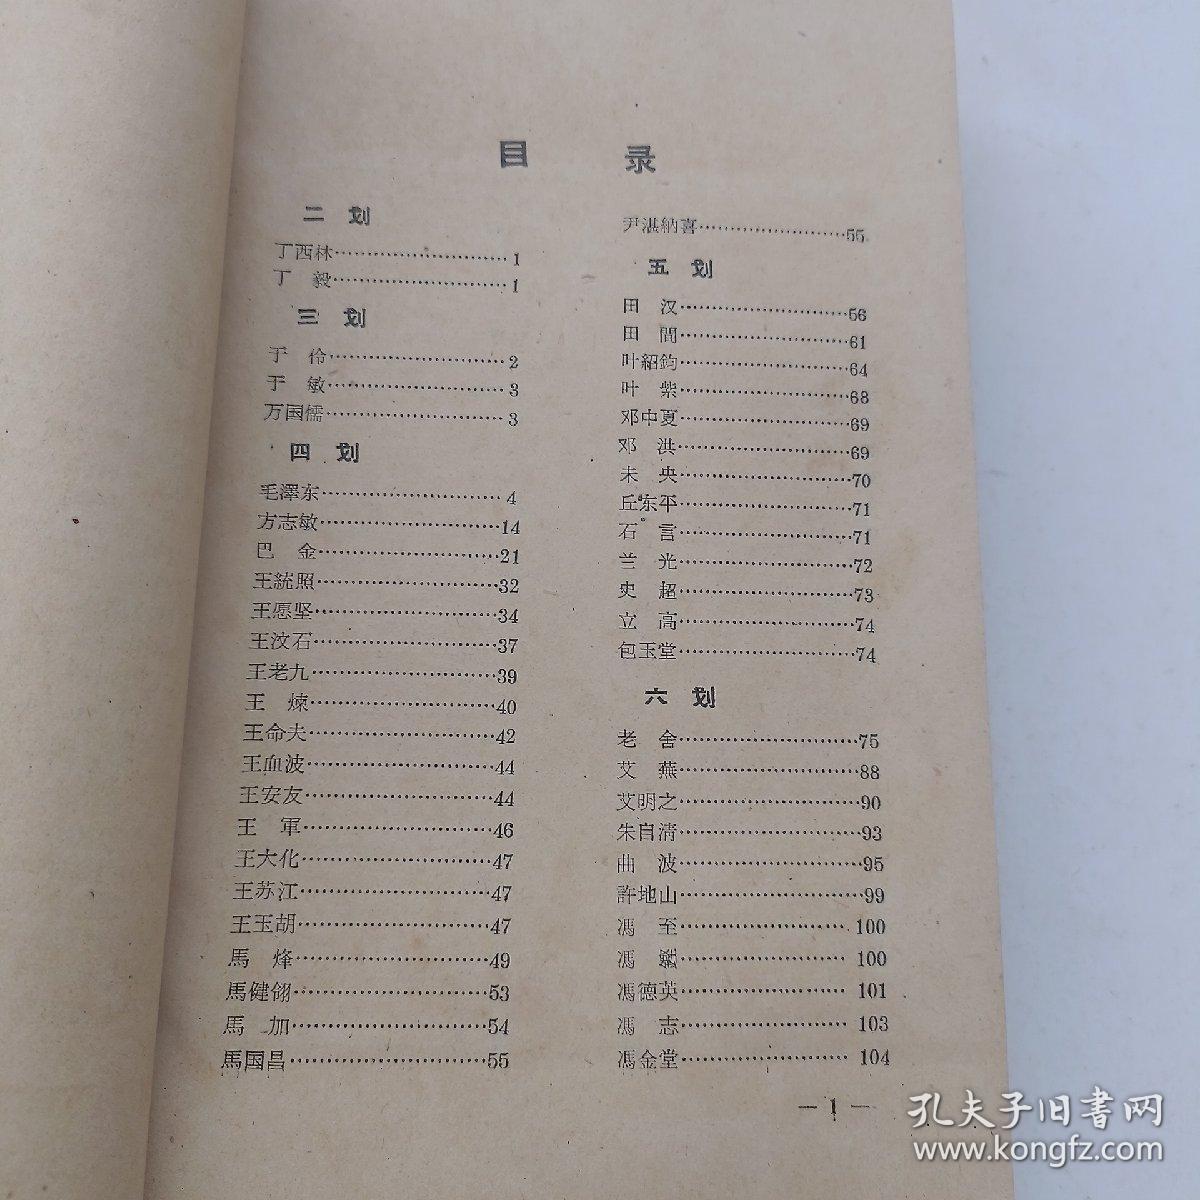 目 录
二 划
丁西林………………………1
丁 毅………………………1
三 划
于 伶………………………2
于 敏………………………3
万国儒………………………3
四 划
毛澤东………………………4
方志敏………………………14
巴 金………………………21
王統照………………………32
王愿坚………………………34
王汶石………………………37
王老九………………………39
王 煉………………………40
王命夫………………………42
王血波………………………44
王安友………………………44
王 軍………………………46
王大化………………………47
王苏江………………………47
王玉胡………………………47
馬 烽………………………49
馬健翎………………………53
馬 加………………………54
馬国昌………………………55
尹湛納喜……………………55
五 划
田 汉………………………56
田 間………………………61
叶紹鈞………………………64
叶 紫………………………68
邓中夏………………………69
邓 洪………………………69
未 央………………………70
丘东平………………………71
石 言………………………71
兰 光………………………72
史 超………………………73
立 高………………………74
包玉堂………………………74
六 划
老 舍………………………75
艾 蕪………………………88
艾明之………………………90
朱自清………………………93
曲 波………………………95
許地山………………………99
馮 至………………………100
馮 ………………………100
馮德英………………………101
馮 志………………………103
馮金堂………………………104
—1—
孔夫子旧書网
www.kongfz.com